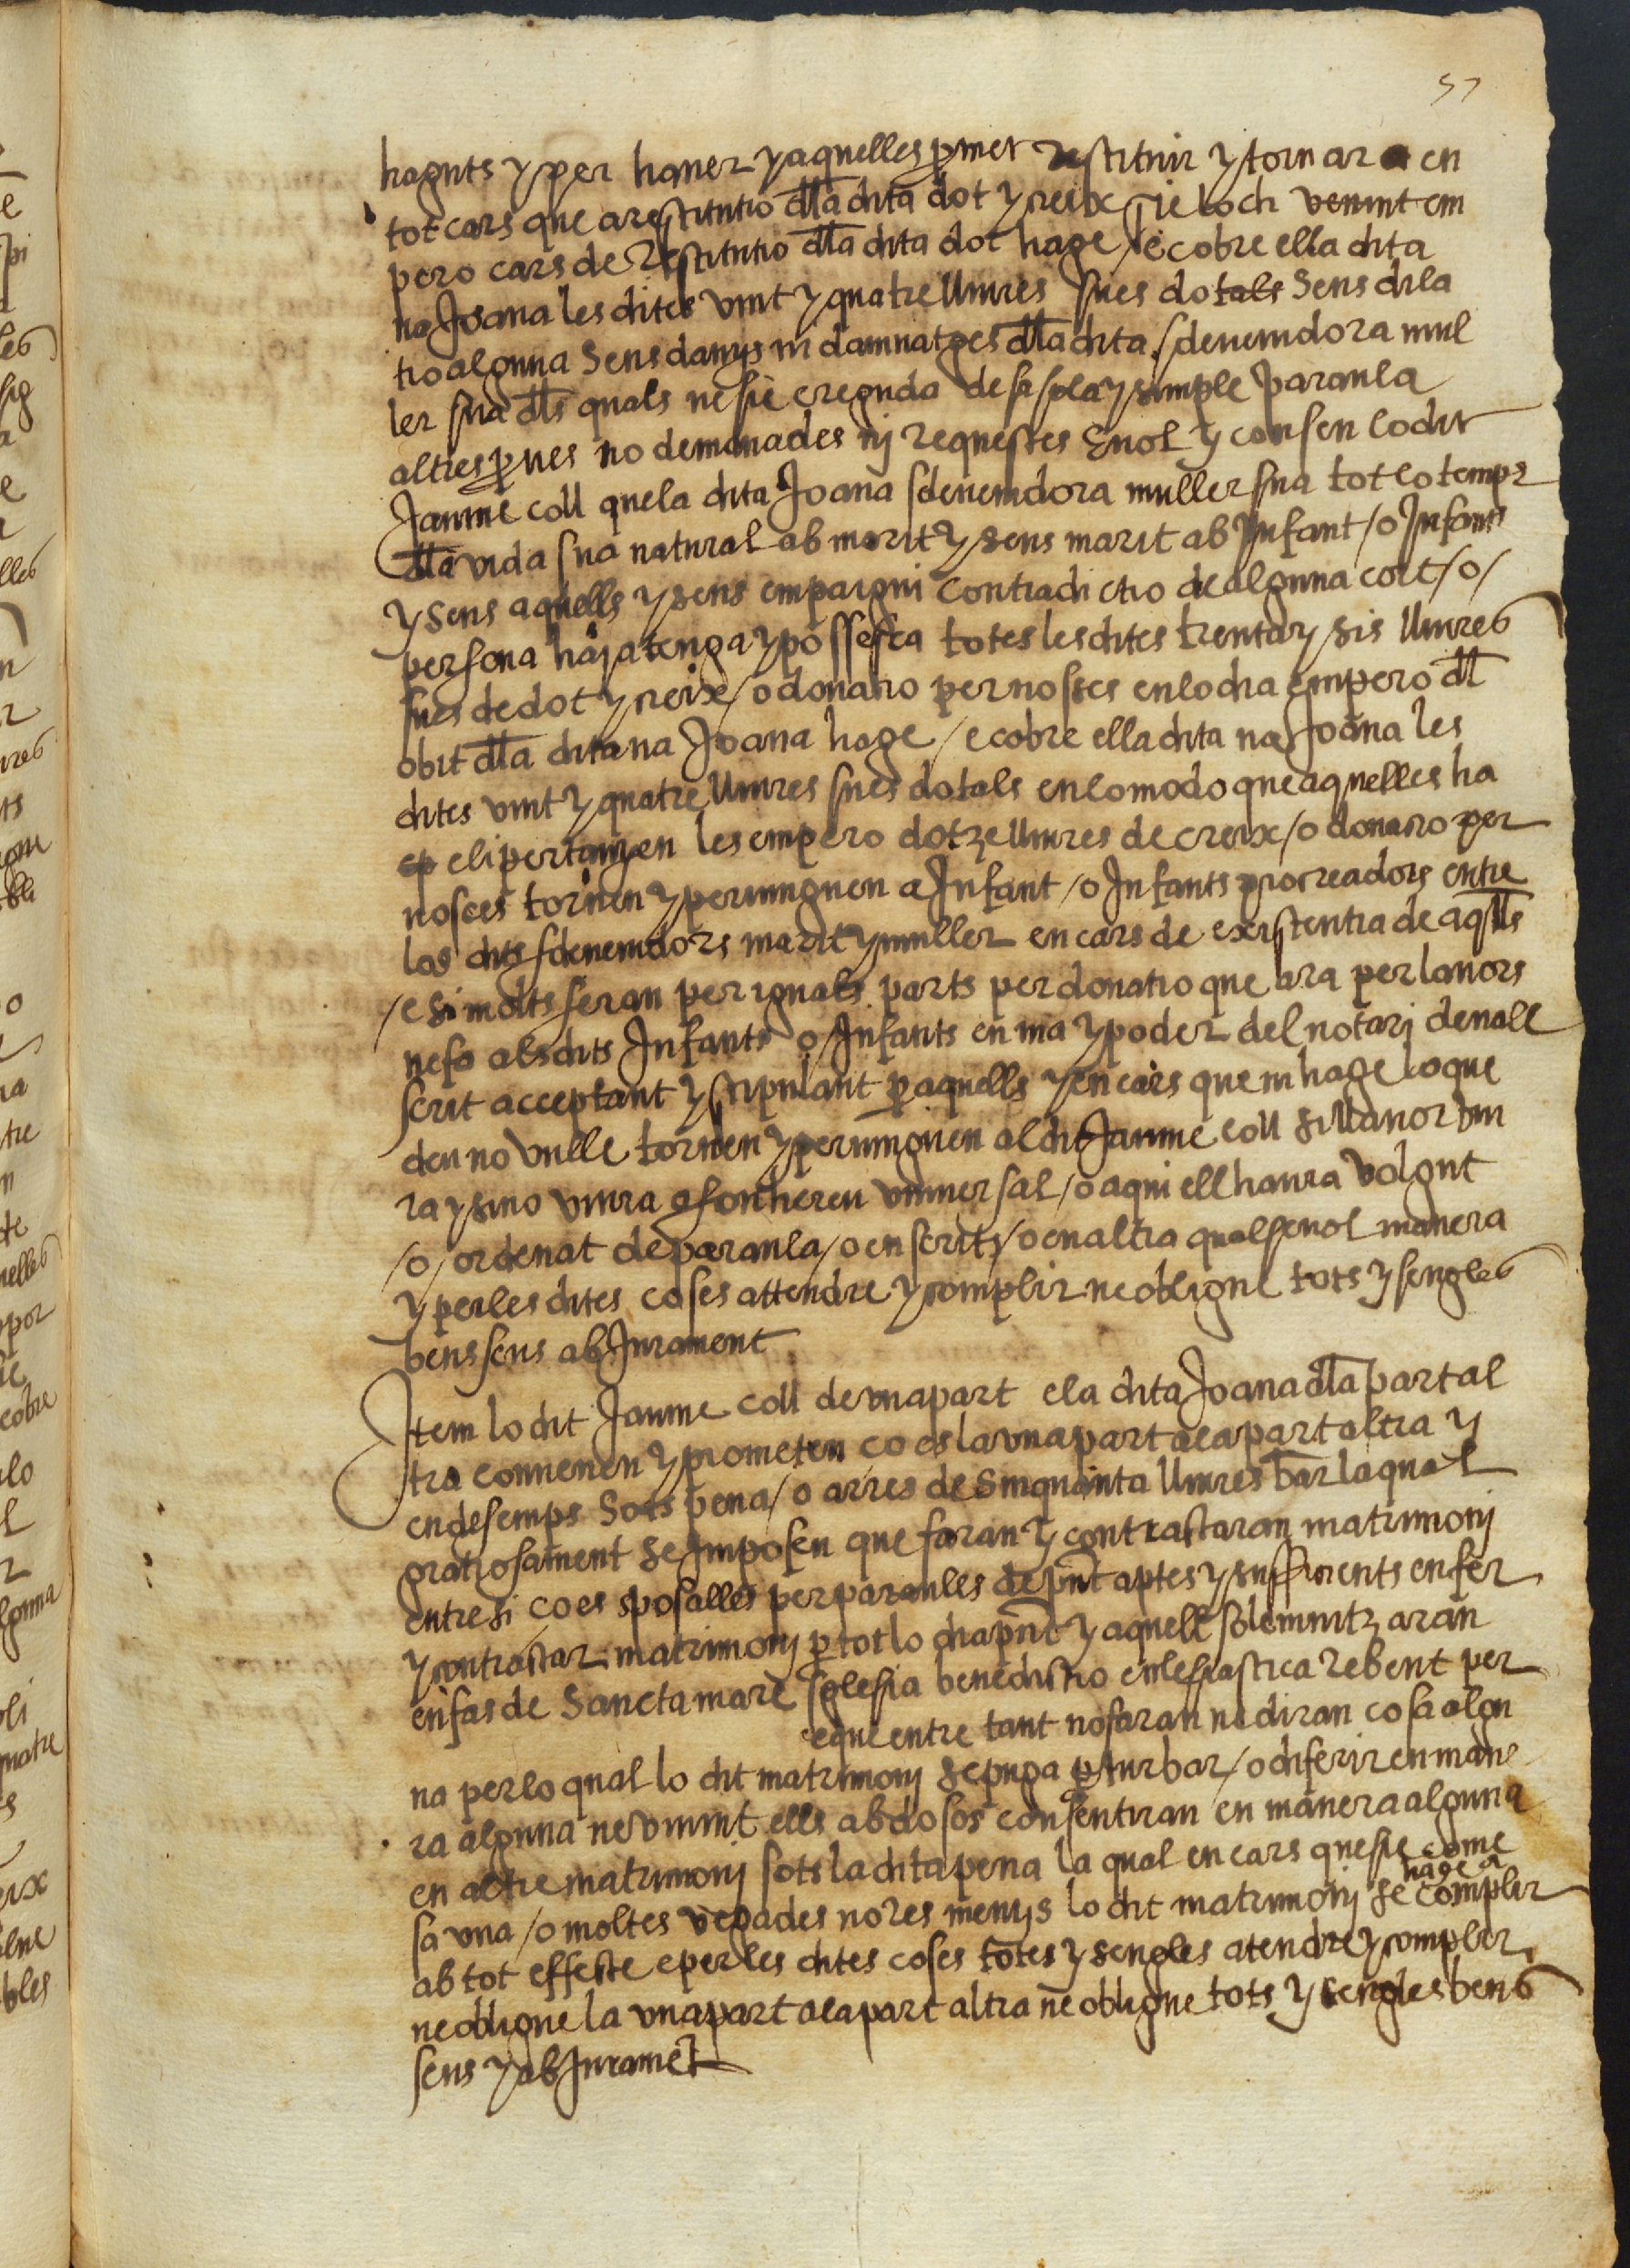 57
haguts y per haver y aquelles pmet restituir y tornar en
tot cars que a restitutio dla dita dot y creix sie loch venint em
pero cars de restitutio dla dita dot hage / e cobre ella dita
na Joana les dites vint y quatre lliures sues dotals sens dila
tio alguna sens danys ni damnatges dla dita sdevenidora mul
ler sua dls quals ne sie creguda de sa sola y simple paraula
altres pves no demanades nj requestes E vol y consen lo dit
Jaume coll que la dita Joana sdevenidora muller sua tot lo temps
dla vida sua natural ab marit y sens marit ab Infant / o Infants
y sens aquells y sens empaig ni contradictio de alguna cort / o /
persona haja tenga y possesca totes les dites trenta y sis lliures
sues de dot y creix / o donatio per nosces en lo dia empero dl
obit dla dita na Joana hage / e cobre ella dita na Joana les
dites vint y quatre lliures sues dotals en lo modo que aquelles ha
e li pertanyen les empero dotze lliures de creix / o donatio per
nosces tornen y pervinguen a Infant / o Infants procreadors entre
los dits sdevenidors marit y muller en cars de existentia de aqlls
/ e si molts seran per iguals parts per donatio que ara per lavors
ne fa als dits Infants o Infants en ma y poder del notarj devall
scrit acceptant y stipulant p aquells y en cars que ni hage lo que
deu no vulle tornen y pervinguen al dit Jaume coll si llavor viu
ra y sino viura a son hereu universal / o a qui ell haura volgut
/ o / ordenat de paraula / o en scrits / o en altra qualsevol manera
y per les dites coses attendre y complir ne obligue tots y sengles
bens seus ab Jurament
Item lo dit Jaume coll de una part e la dita Joana dla part al
tra convenen y prometen ço es la una part a la part altra y
endesemps sots pena / o arres de sinquanta lliures bar la qual
gratiosament se Imposen que faran y contractaran matrimonj
entre si ço es sposalles per paraules de pnt aptes y sufficients en fer
y contractar matrimonj p tot lo dia pnt y aquell solemnitzaran
en fas de sancta mare sglesia benedictio ecclesiastica rebent per
e que entre tant no faran ne diran cosa algu
na per lo qual lo dit matrimonj se puga pturbar / o diferir en mane
ra alguna ne vivint ells abdosos consentiran en manera alguna
en altre matrimonj sots la dita pena la qual en cars que sie come
sa una / o moltes vegades no res menys lo dit matrimonj se hage a complir
ab tot effecte e per les dites coses totes y sengles atendre y complir
ne obligue la una part a la part altra ne obligue tots y sengles bens
seus y ab Juramet